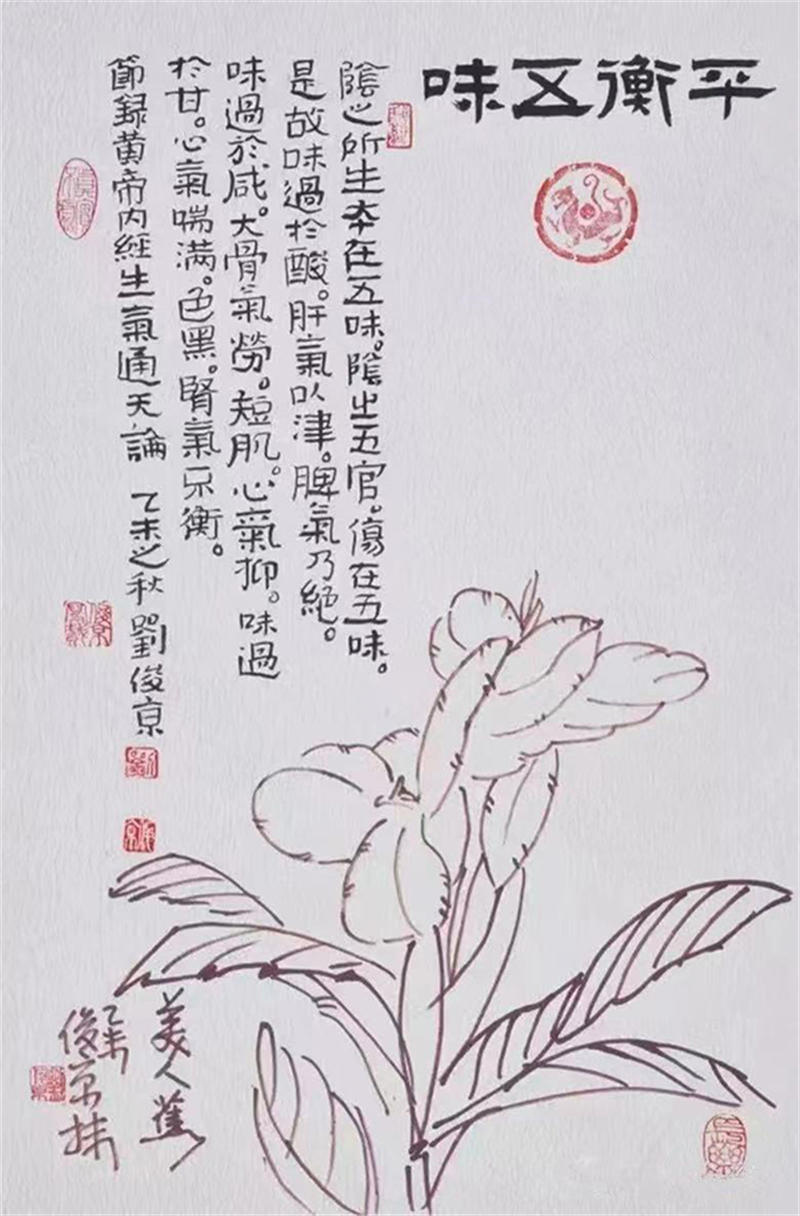 平衡五味
陰之所生本在五味。陰之五官。傷在五味。
是故味過於酸。肝氣以津。脾氣乃絕。
味過於咸。大骨氣勞。短肌。心氣抑。味過
於甘。心氣喘滿。色黑。腎氣不衡。
節録黄帝内經生氣通天論 乙未之秋 劉俊京
美人蕉
乙未
俊京抹